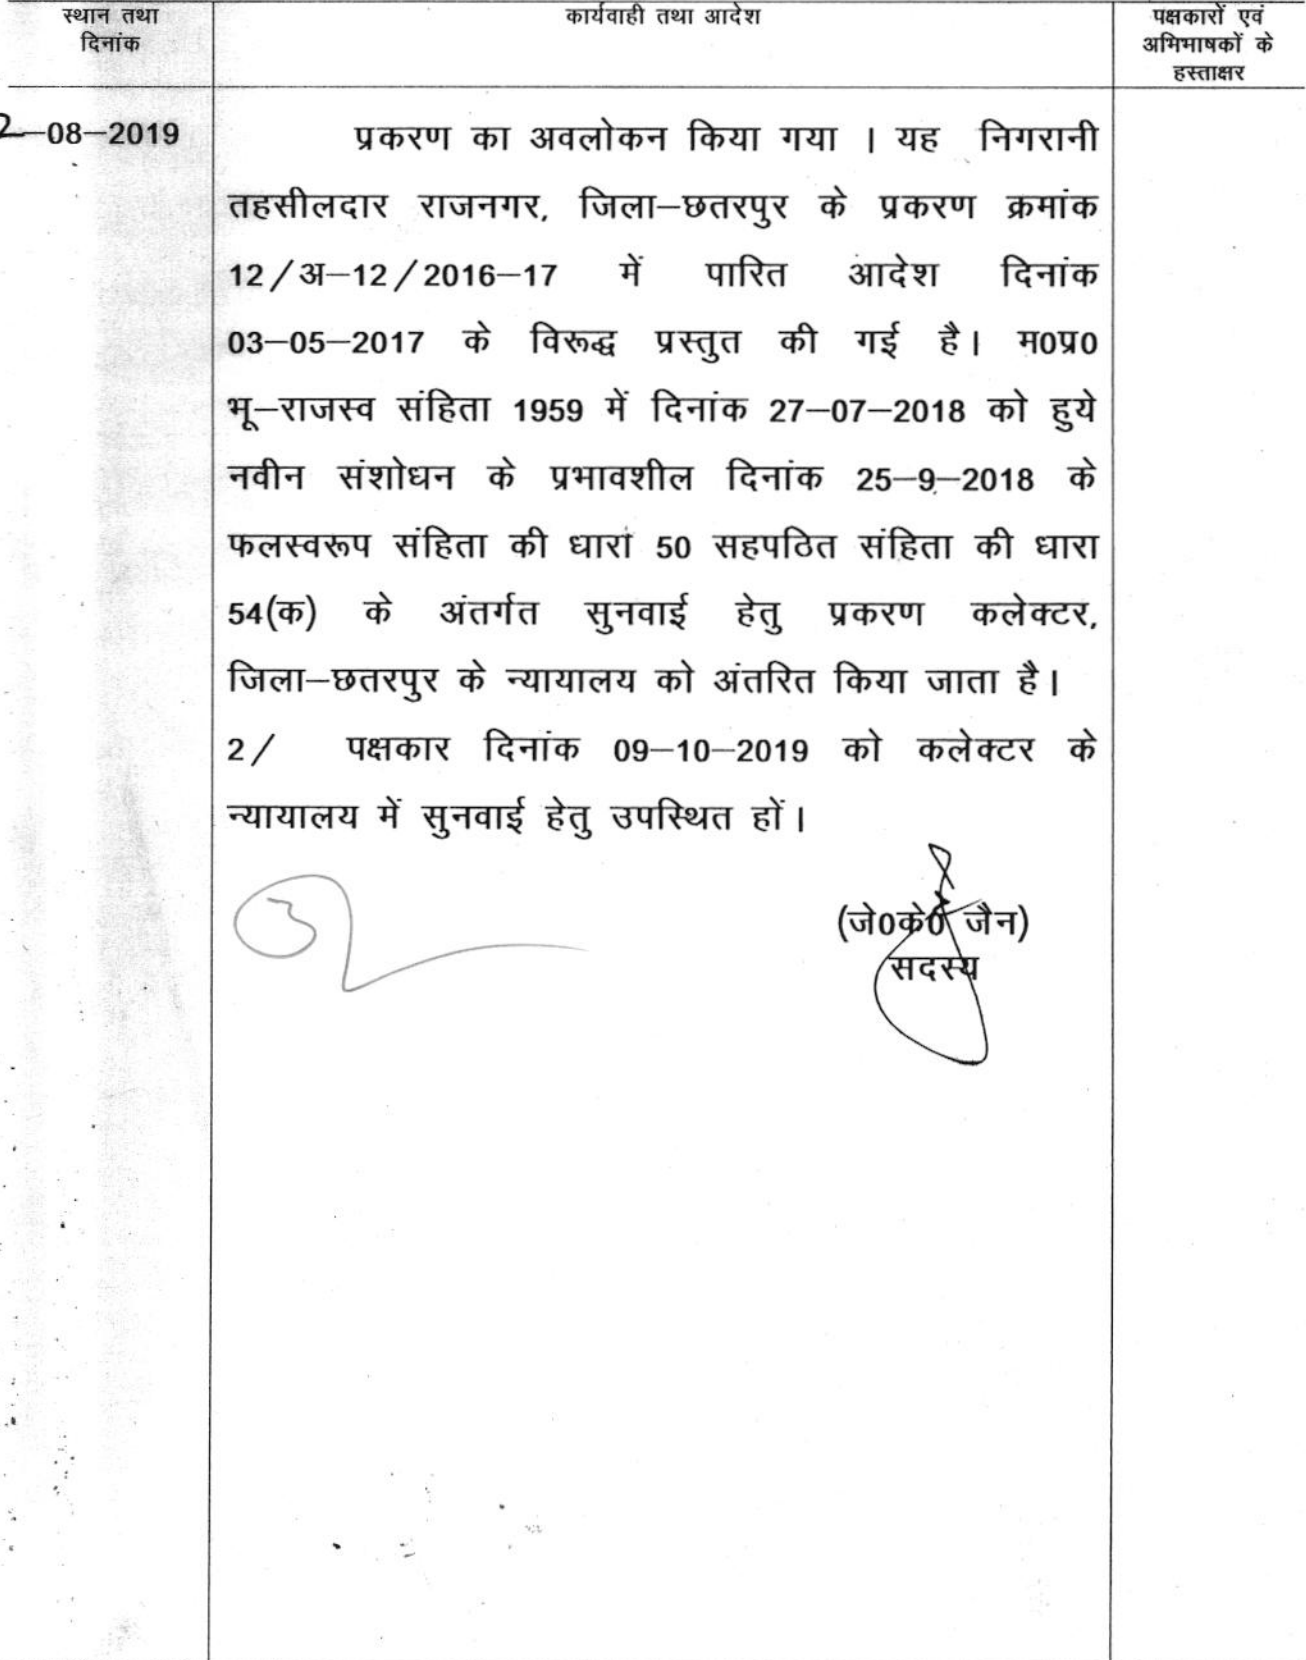 स्थान तथा
दिनांक
कार्यवाही तथा आदेश
पक्षकारों एवं
अभिभाषकों के
हस्ताक्षर
2–08–2019
प्रकरण का अवलोकन किया गया । यह निगरानी
तहसीलदार राजनगर, जिला–छतरपुर के प्रकरण क्रमांक
12/अ–12/2016–17 में पारित आदेश दिनांक
03–05–2017 के विरूद्ध प्रस्तुत की गई है। म0प्र0
भू–राजस्व संहिता 1959 में दिनांक 27–07–2018 को हुये
नवीन संशोधन के प्रभावशील दिनांक 25–9–2018 के
फलस्वरूप संहिता की धारा 50 सहपठित संहिता की धारा
54(क) के अंतर्गत सुनवाई हेतु प्रकरण कलेक्टर,
जिला–छतरपुर के न्यायालय को अंतरित किया जाता है।
2/ पक्षकार दिनांक 09–10–2019 को कलेक्टर के
न्यायालय में सुनवाई हेतु उपस्थित हों।
(जे0के0 जैन)
सदस्य